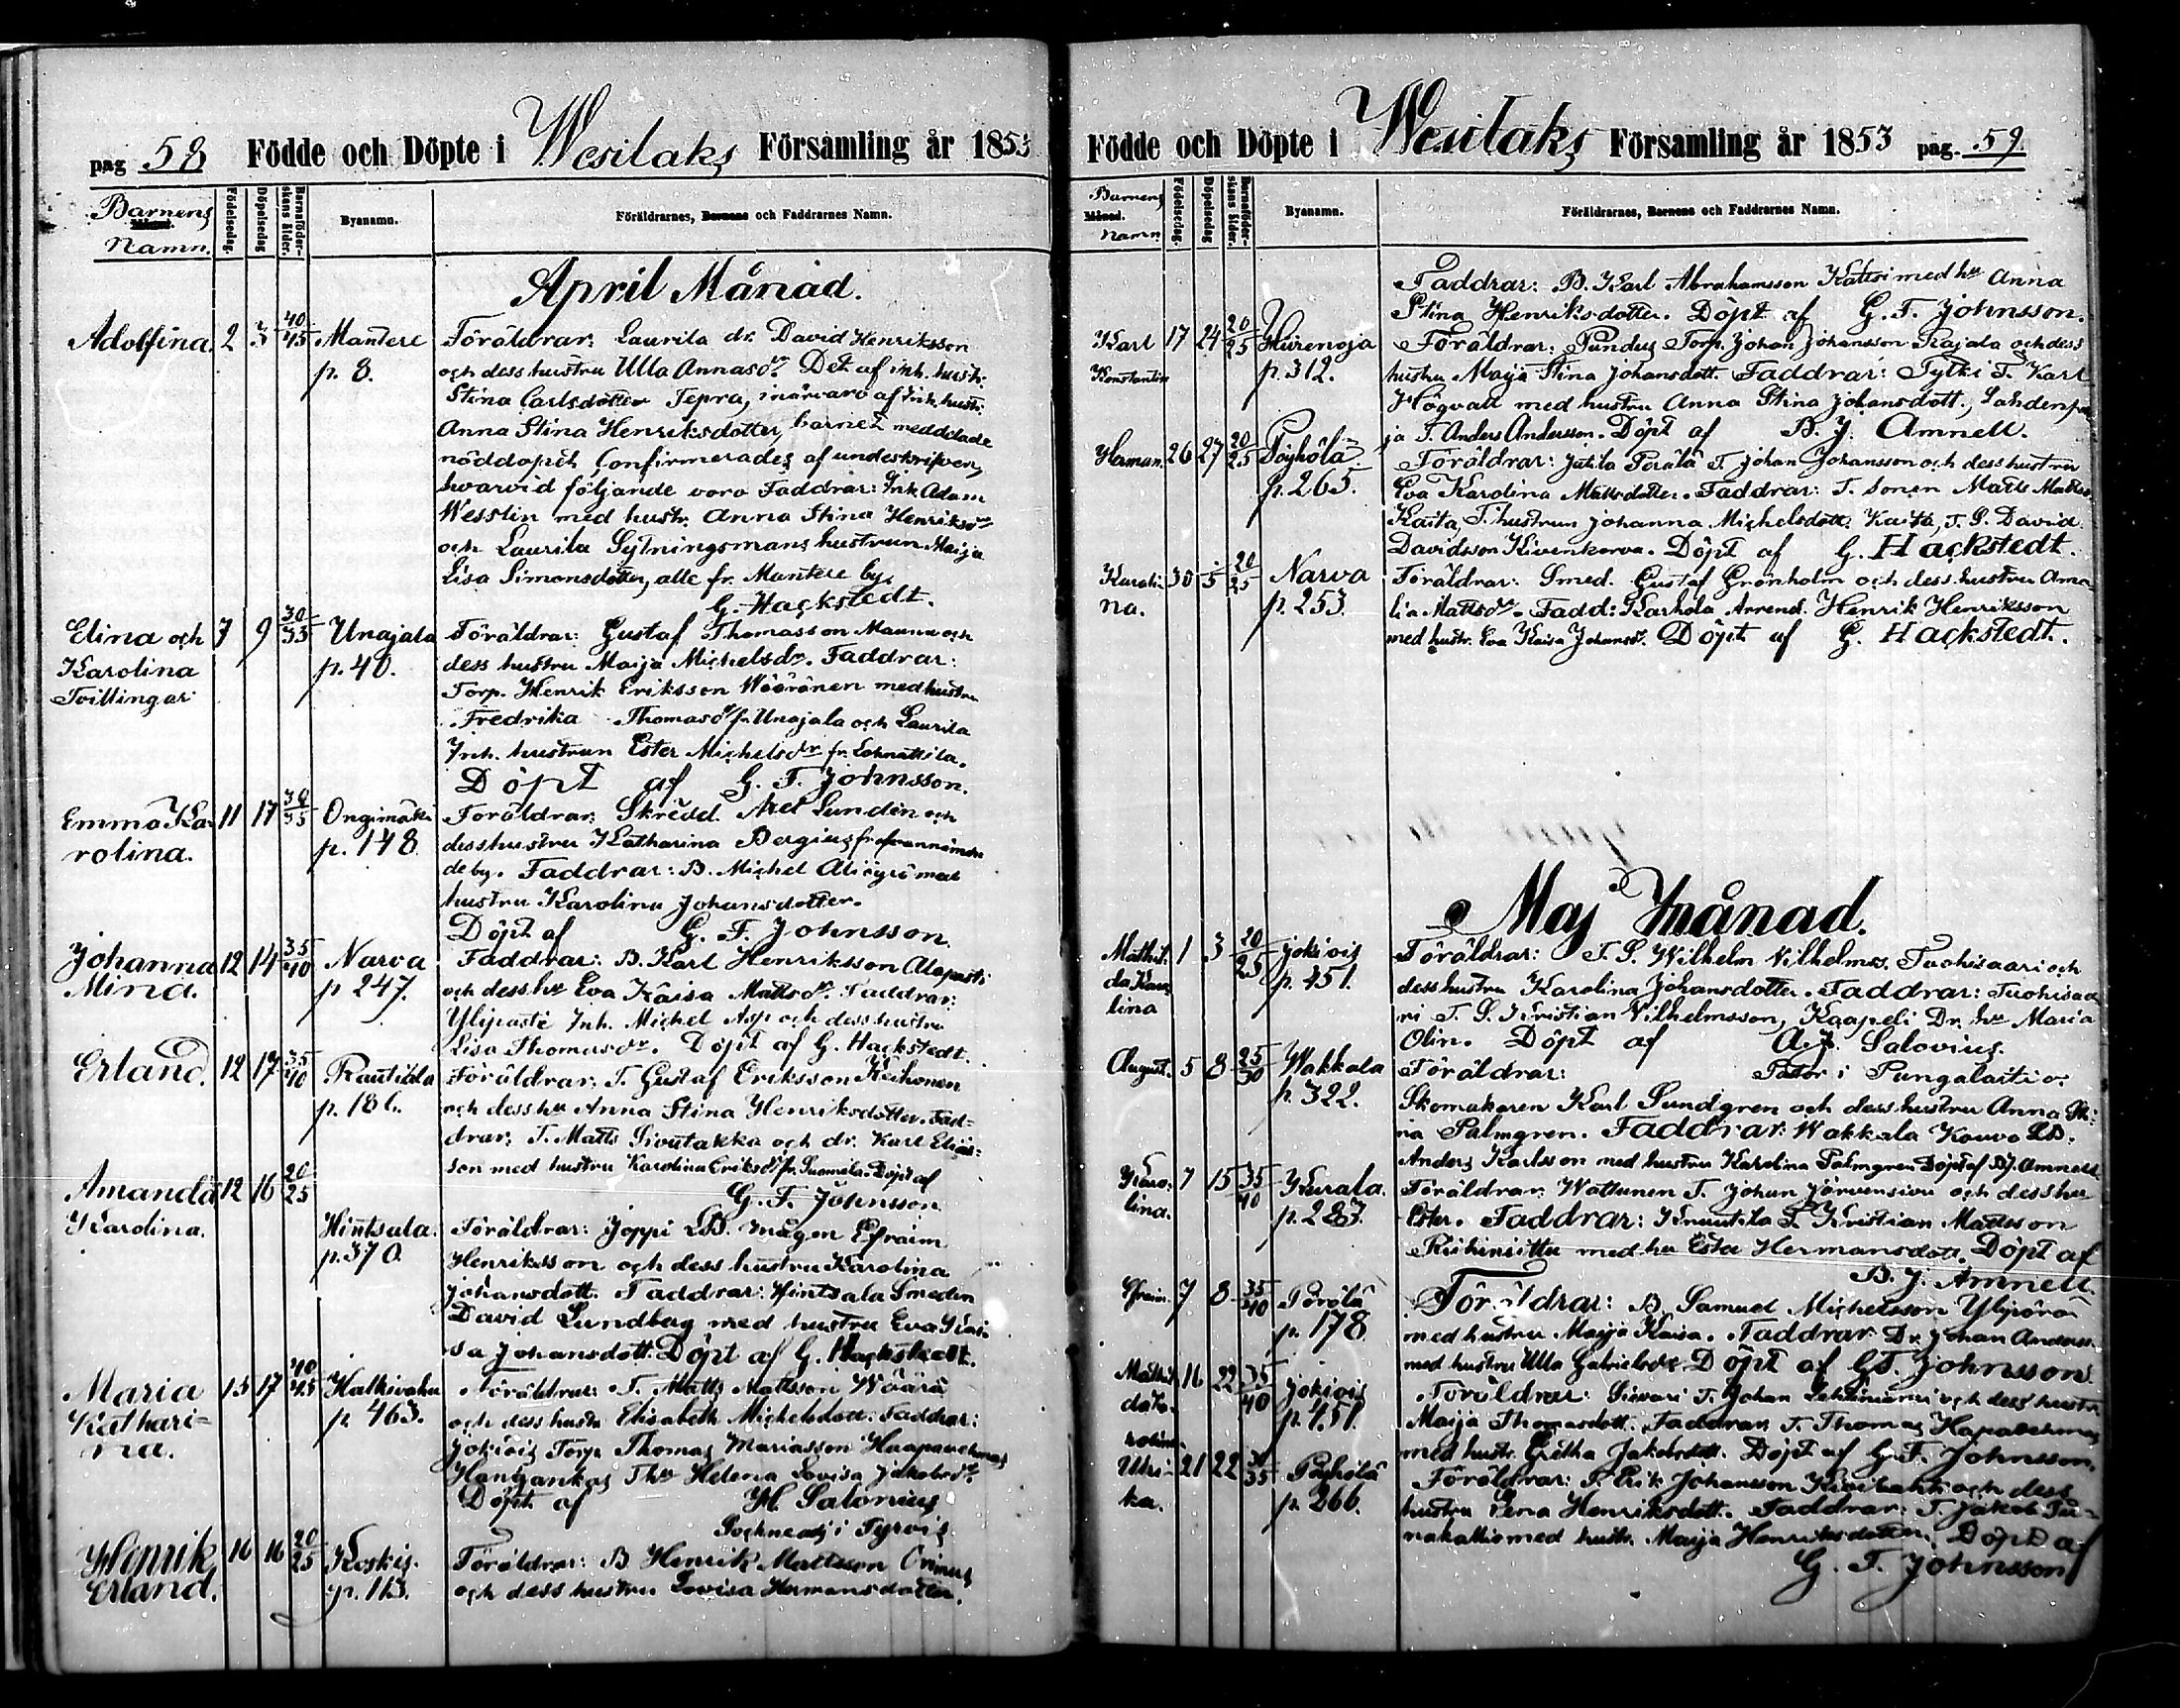 pag 58 Födde och Döpte i Wesilaks Församling år 1853
Barnens Månad. Namn. Födelsedag. Döpelsedag Barnaföderskans ålder. Byanamn. Föräldrarnes, Barnens och Faddrarnes Namn.
April Månad.
Adolfina. 2 3 40/45 Mantere Föräldrar: Laurila dr. David Henriksson
p. 8. och dess hustru Ulla Annasdr. Det af inh. hustr.
Stina Carlsdotter Tepra, i närvaro af Inh. hustr.
Anna Stina Henriksdotter, barnet meddelade
nöddopet Confirmerades af undeskrifven,
hvarvid följande voro Faddrar: Inh Adam
Wesslin med hustr. Anna Stina Henriksdr
och Laurila Sytningsmans hustrun Maija
Lisa Simonsdotter, alle fr. Mantere by.
G. Hackstedt.
Elina och 7 9 30/35 Unajala Föräldrar: Gustaf Thomasson Mauna och
Karolina p. 40. dess hustru Maija Michelsdr. Faddrar:
Tvillingar Torp. Henrik Eriksson Wääränen med hustru
Fredrika Thomasdr fr. Unajala och Laurila
Inh. hustrun Ester Michelsdr fr.
Döpt af G. F. Johnsson.
Emma Ka- 11 17 30/35 Ongimäki Föräldrar: Skrädd. Axel Lundén och
rolina. p. 148. dess hustru Katharina Bergius fr
de by. Faddrar: B. Michel med
hustru Karolina Johansdotter.
Döpt af G. F. Johnsson.
Johanna 12 14 35/40 Narva Faddrar: B. Karl Henriksson Alapasti
Mina. p 247. och dess hu Eva Kaisa Mattsdr. Faddrar:
Ylipasti Inh. Michel Asp och dess hustru
Lisa Thomasdr. Döpt af G. Hackstedt.
Erland. 12 17 35/40 Rautiala Föräldrar: T. Gustaf Eriksson Keihonen
p. 186. och dess hu Anna Stina Henriksdotter. Fad-
drar: T. Matts Sivutakka och dr. Karl Elias-
son med hustru Karolina Eriksdr fr. Suomela. Döpt af
Amanda 12 16 20/25 G. F. Johnsson
Karolina. Hintsala. Föräldrar: Joppi LB. mågen Efraim
p. 370. Henriksson och dess hustru Karolina
Johansdott. Faddrar: Hintsala Smeden
David Lundbag med hustru Eva Kai-
sa Johansdott. Döpt af G. Hackstedt.
Maria 15 17 40/45 Halkivaha Föräldrar: T. Matts Mattsson Wäärä
Kathari- p 463. och dess hustr Elisabeth Michelsdott. Faddrar:
na. Jokiois Torp Thomas Mariasson Haapaniemi
Hangankas Thu Helena Lovisa Jakobsdr.
Döpt af H. Salonius
Sockneadj i Tyrvis
Henrik 16 16 20/25 Koskis. Föräldrar: B Henrik Mattsson
Erland. p. 113. och dess hustru Lovisa Hermansdotter.
Födde och Döpte i Wesilaks Församling år 1853 pag. 59.
Barnens Månad. Namn Födelsedag. Döpelsedag Barnaföderskans ålder. Byanamn. Föräldrarnes, Barnens och Faddrarnes Namn.
Faddrar: B. Karl Abrahamsson Kattsi med hu Anna
Stina Henriksdotter. Döpt af G. F. Johnsson.
Karl 17 24 20/25 Hurenoja Föräldrar: Pundus Torp. Johan Johansson Rajala och dess
Konstantin p. 312. hustru Maija Stina Johansdott. Faddrar: Sylki T. Karl
Högvall med hustru Anna Stina Johansdott., Lahdenpoh
ja T. Anders Andersson. Döpt af B. J. Amnell.
Herman. 26 27 20/25 Pöyhölä Föräldrar: Jutila Perälä T. Johan Johansson och dess hustru
p. 265. Eva Karolina Mattsdotter. Faddrar: T. Sonen Matts Matts.
Kaita, T. hustrun Johanna Michelsdott. Kaita, T. S. David
Davidsson Kivenkorva. Döpt af G. Hackstedt.
Karoli- 30 5 20/25 Narva Föräldrar: Smed. Gustaf Grönholm och dess hustru Ama
na. p. 253. lia Mattsdr. Fadd: Karhola Arrend. Henrik Henriksson
med hustr. Eva Kaisa Johansdr. Döpt af G. Hackstedt.
Maj Månad.
Mathil- 1 3 20/25 Jokiois Föräldrar: T. S. Wilhelm Vilhelmss. Tuohisaari och
da Karo p. 451. dess hustru Karolina Johansdotter. Faddrar: Tuohisaa
lina ri T. S. Kristian Vilhelmsson, Kaapeli Dr. hu Maria
Olin. Döpt af A. J. Salovius.
August. 5 8 25/30 Wakkala Föräldrar: Pastor i Pungalaitio.
p. 322. Skomakaren Karl Sundgren och dess hustru Anna Sti-
na Palmgren. Faddrar: Wakkala Kouvo LB.
Anders Karlsson med hustru Karolina Palmgren Döpt af B J. Amnell
Karo- 7 15 35/40 Kurala. Föräldrar: Wattunen T. Johan Järvensivu och dess hu
lina. p. 287. Ester. Faddrar: Knuutila T. Kristian Matsson
med hu Ester Hermansdott. Döpt af
B. J. Amnell.
Efraim. 7 8 35/40 Pörölä Föräldrar: B. Samuel Michelsson Ylipörö
p. 178 med hustru Maija Kaisa. Faddrar Dr. Johan Anderss.
med hustru Ulla Gabrielsdr. Döpt af G F. Johnsson
Mathil- 16 22 35/40 Jokiois Föräldrar: Siwari T. Johan och dess hustr
da Ka- p. 451. Maija Thomasdott. Faddrar: T. Thomas
rolina med hustr. Gretha Jakobsdott. Döpt af G. F. Johnsson.
Ulri- 21 22 30/35 Pöyhölä Föräldrar: T. Erik Johansson Kivilahti och dess
ka. p. 266. hustru Lena Henriksdott. Faddrar: T. Jakob Pu-
nakallio med hustr. Maija Henriksdotter. Döpt af
G. F. Johnsson